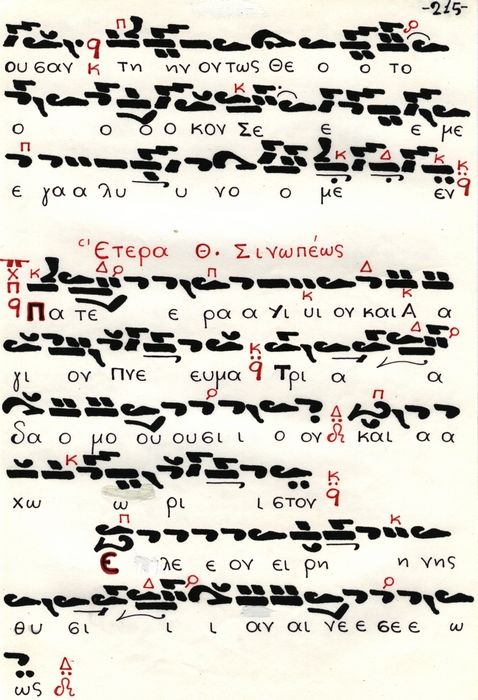 -215-
ουσαν κ τη ην οντως Θε ο ο το
ο ο ο ο κον Σε ε ε με
ε γα α λυ υ νο ο με εν
Έτερα Θ. Σινωπέως
Πα τε ε ρα α Υι υι ον και Α α
γι ον Πνε ευμα Τρι α α
δα ο μο ου ουσι ι ο ον και α α
χω ω ρι ι στον
Ε λε ε ον ει ρη η νης
θυ σι ι ι αν αι νε ε σε ε ω
ως